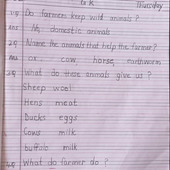 G.K Thursday
1Q Do farmers keep wild animals?
Ans No, domestic animals
2Q Name the animals that help the farmer?
Ans ox cow, horse, earthworm
3Q What do these animals give us?
Sheep wool
Hens meat
Ducks eggs
Cows milk
buffalo milk
4Q What do farmer do?